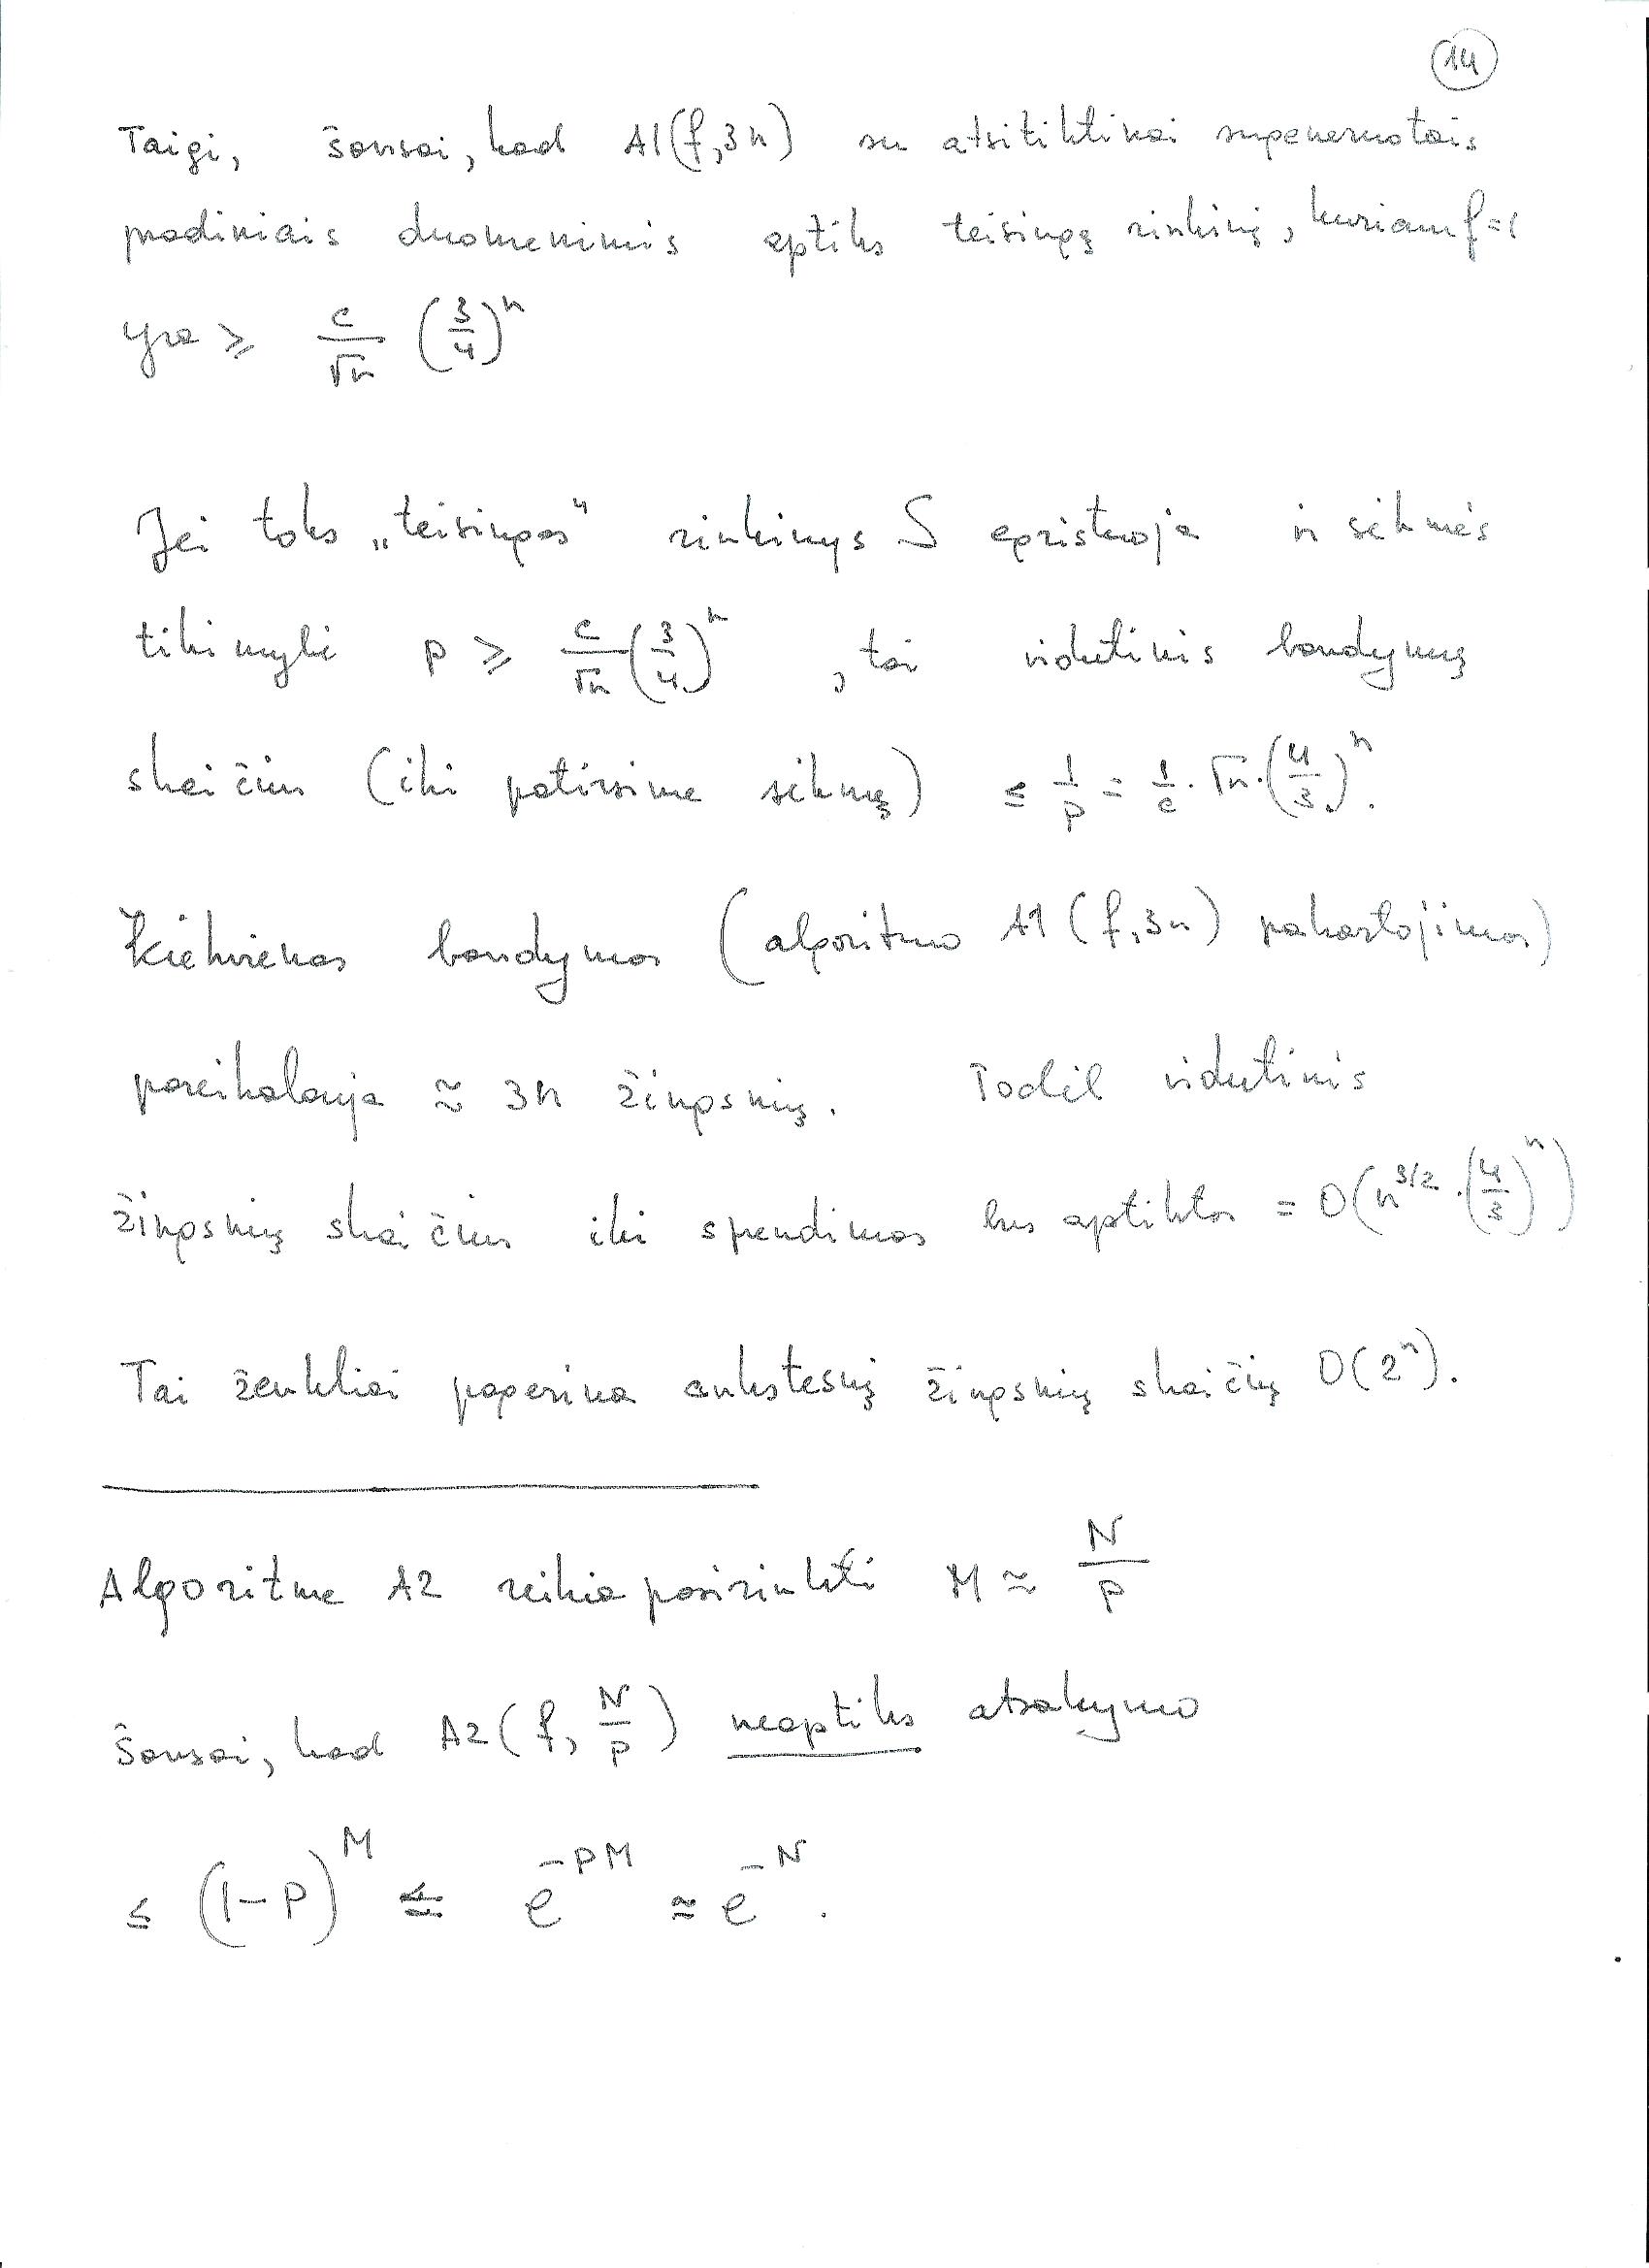 14
Taigi, šansai, kad A1(f,3n) su atsitiktinai sugeneruotais
pradiniais duomenimis aptiks teisingą rinkinį, kuriam f=1
yra ≥ c/√n (3/4)^n
Jei toks „teisingas" rinkinys S egzistuoja ir sėkmės
tikimybė p ≥ c/√n (3/4)^n, tai vidutinis bandymų
skaičius (iki patirsime sėkmę) ≤ 1/p = 1/c · √n · (4/3)^n.
Kiekvienas bandymas (algoritmo A1(f,3n) pakartojimas)
pareikalauja ≈ 3n žingsnių. Todėl vidutinis
žingsnių skaičius iki sprendimas bus aptiktas = O(n^3/2 · (4/3)^n)
Tai ženkliai pagerina ankstesnį žingsnių skaičių O(2^n).
Algoritme A2 reikia pasirinkti M ≈ N/p
Šansai, kad A2(f, N/p) neaptiks atsakymo
≤ (1-p)^M ≤ e^-pM ≈ e^-N.